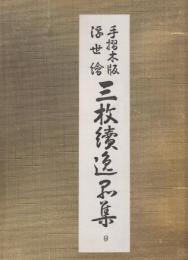 手摺木版
浮世繪
三枚續逸品集